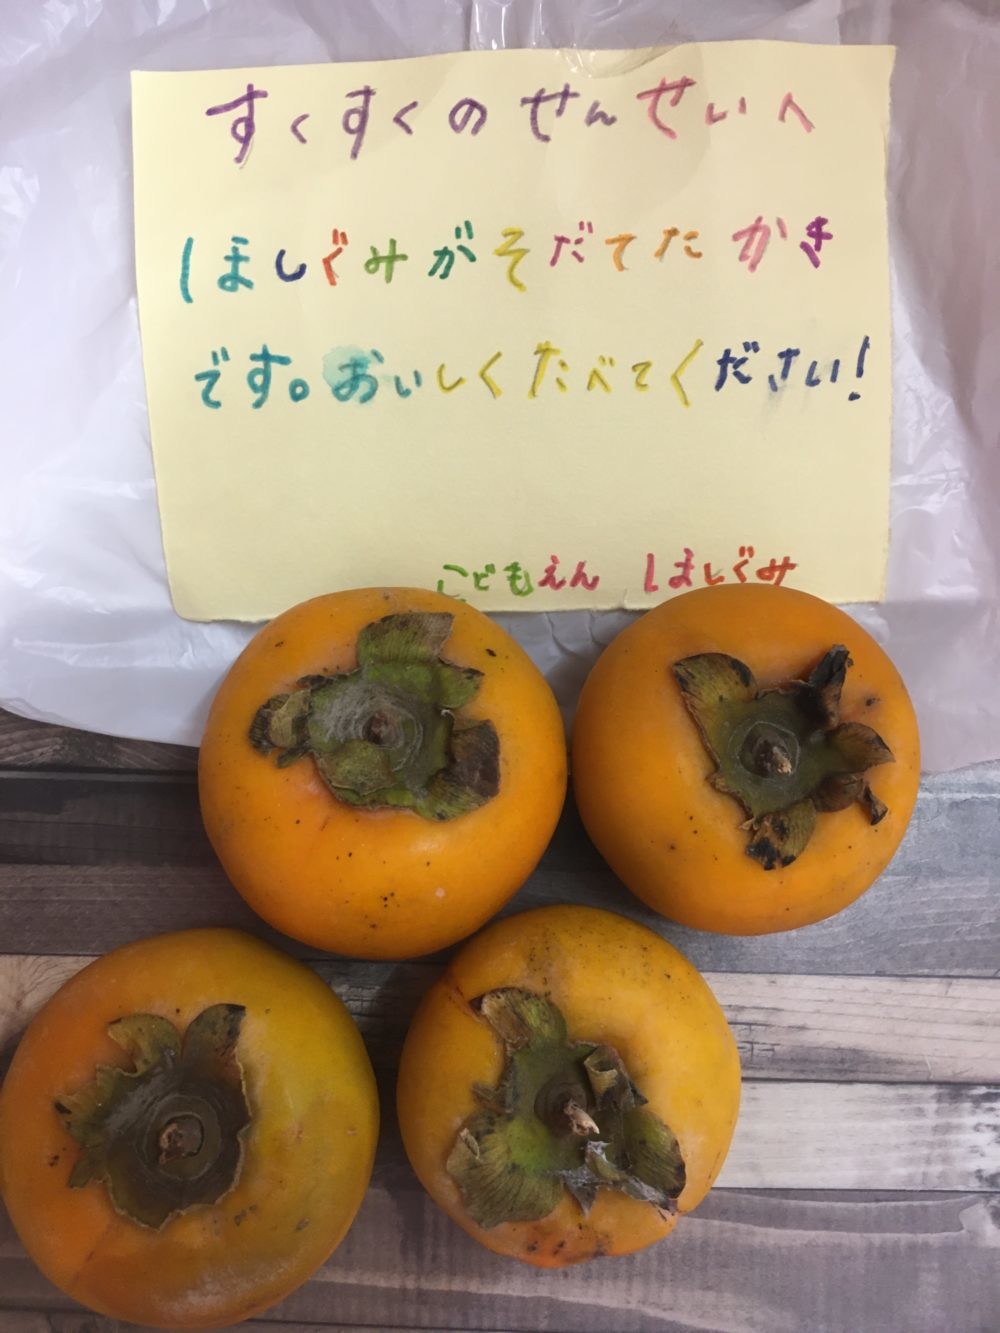 すくすくのせんせいへ
ほしぐみがそだてたかき
です。おいしくたべてください!
こどもえん ほしぐみ